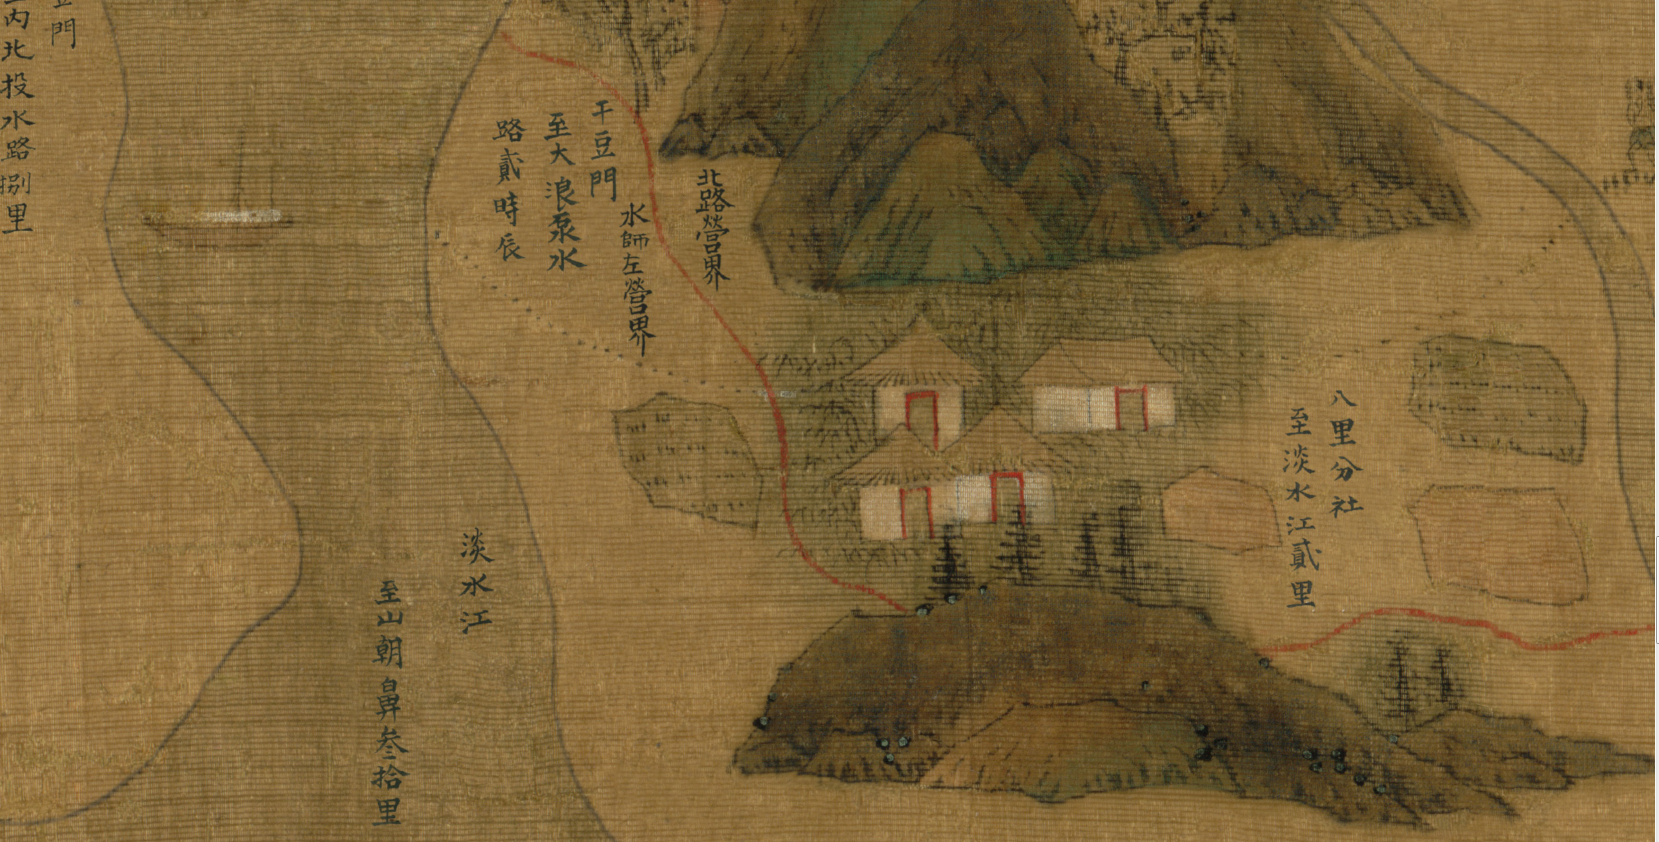 八里分社
至淡水江貳里
北路營界
水師左營界
干豆門
至大浪泵水
路貳時辰
淡水江
至山朝鼻叁拾里
門
內北投水路捌里